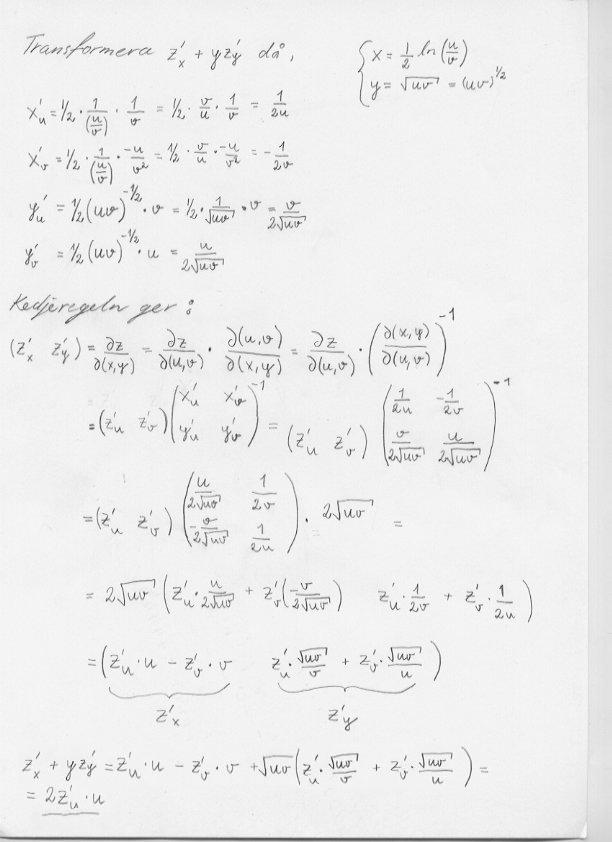 Transformera z'ₓ + yz'ᵧ då, { x = 1/2 ln(u/v)
y = √uv = (uv)^1/2
x'ᵤ = 1/2 · 1/(u/v) · 1/v = 1/2 · v/u · 1/v = 1/2u
x'ᵥ = 1/2 · 1/(u/v) · -u/v² = 1/2 · v/u · -u/v² = -1/2v
y'ᵤ = 1/2(uv)^-1/2 · v = 1/2 · 1/√uv · v = v/2√uv
y'ᵥ = 1/2(uv)^-1/2 · u = u/2√uv
Kedjeregeln ger:
(z'ₓ z'ᵧ) = ∂z/∂(x,y) = ∂z/∂(u,v) · ∂(u,v)/∂(x,y) = ∂z/∂(u,v) · (∂(x,y)/∂(u,v))^-1
= (z'ᵤ z'ᵥ) (x'ᵤ x'ᵥ; y'ᵤ y'ᵥ)^-1 = (z'ᵤ z'ᵥ) (1/2u -1/2v; v/2√uv u/2√uv)^-1
= (z'ᵤ z'ᵥ) (u/2√uv 1/2v; -v/2√uv 1/2u) · 2√uv =
= 2√uv (z'ᵤ · u/2√uv + z'ᵥ(-v/2√uv) z'ᵤ · 1/2v + z'ᵥ · 1/2u)
= (z'ᵤ · u - z'ᵥ · v z'ᵤ · √uv/v + z'ᵥ · √uv/u)
z'ₓ z'ᵧ
z'ₓ + yz'ᵧ = z'ᵤ · u - z'ᵥ · v + √uv (z'ᵤ · √uv/v + z'ᵥ · √uv/u) =
= 2z'ᵤ · u